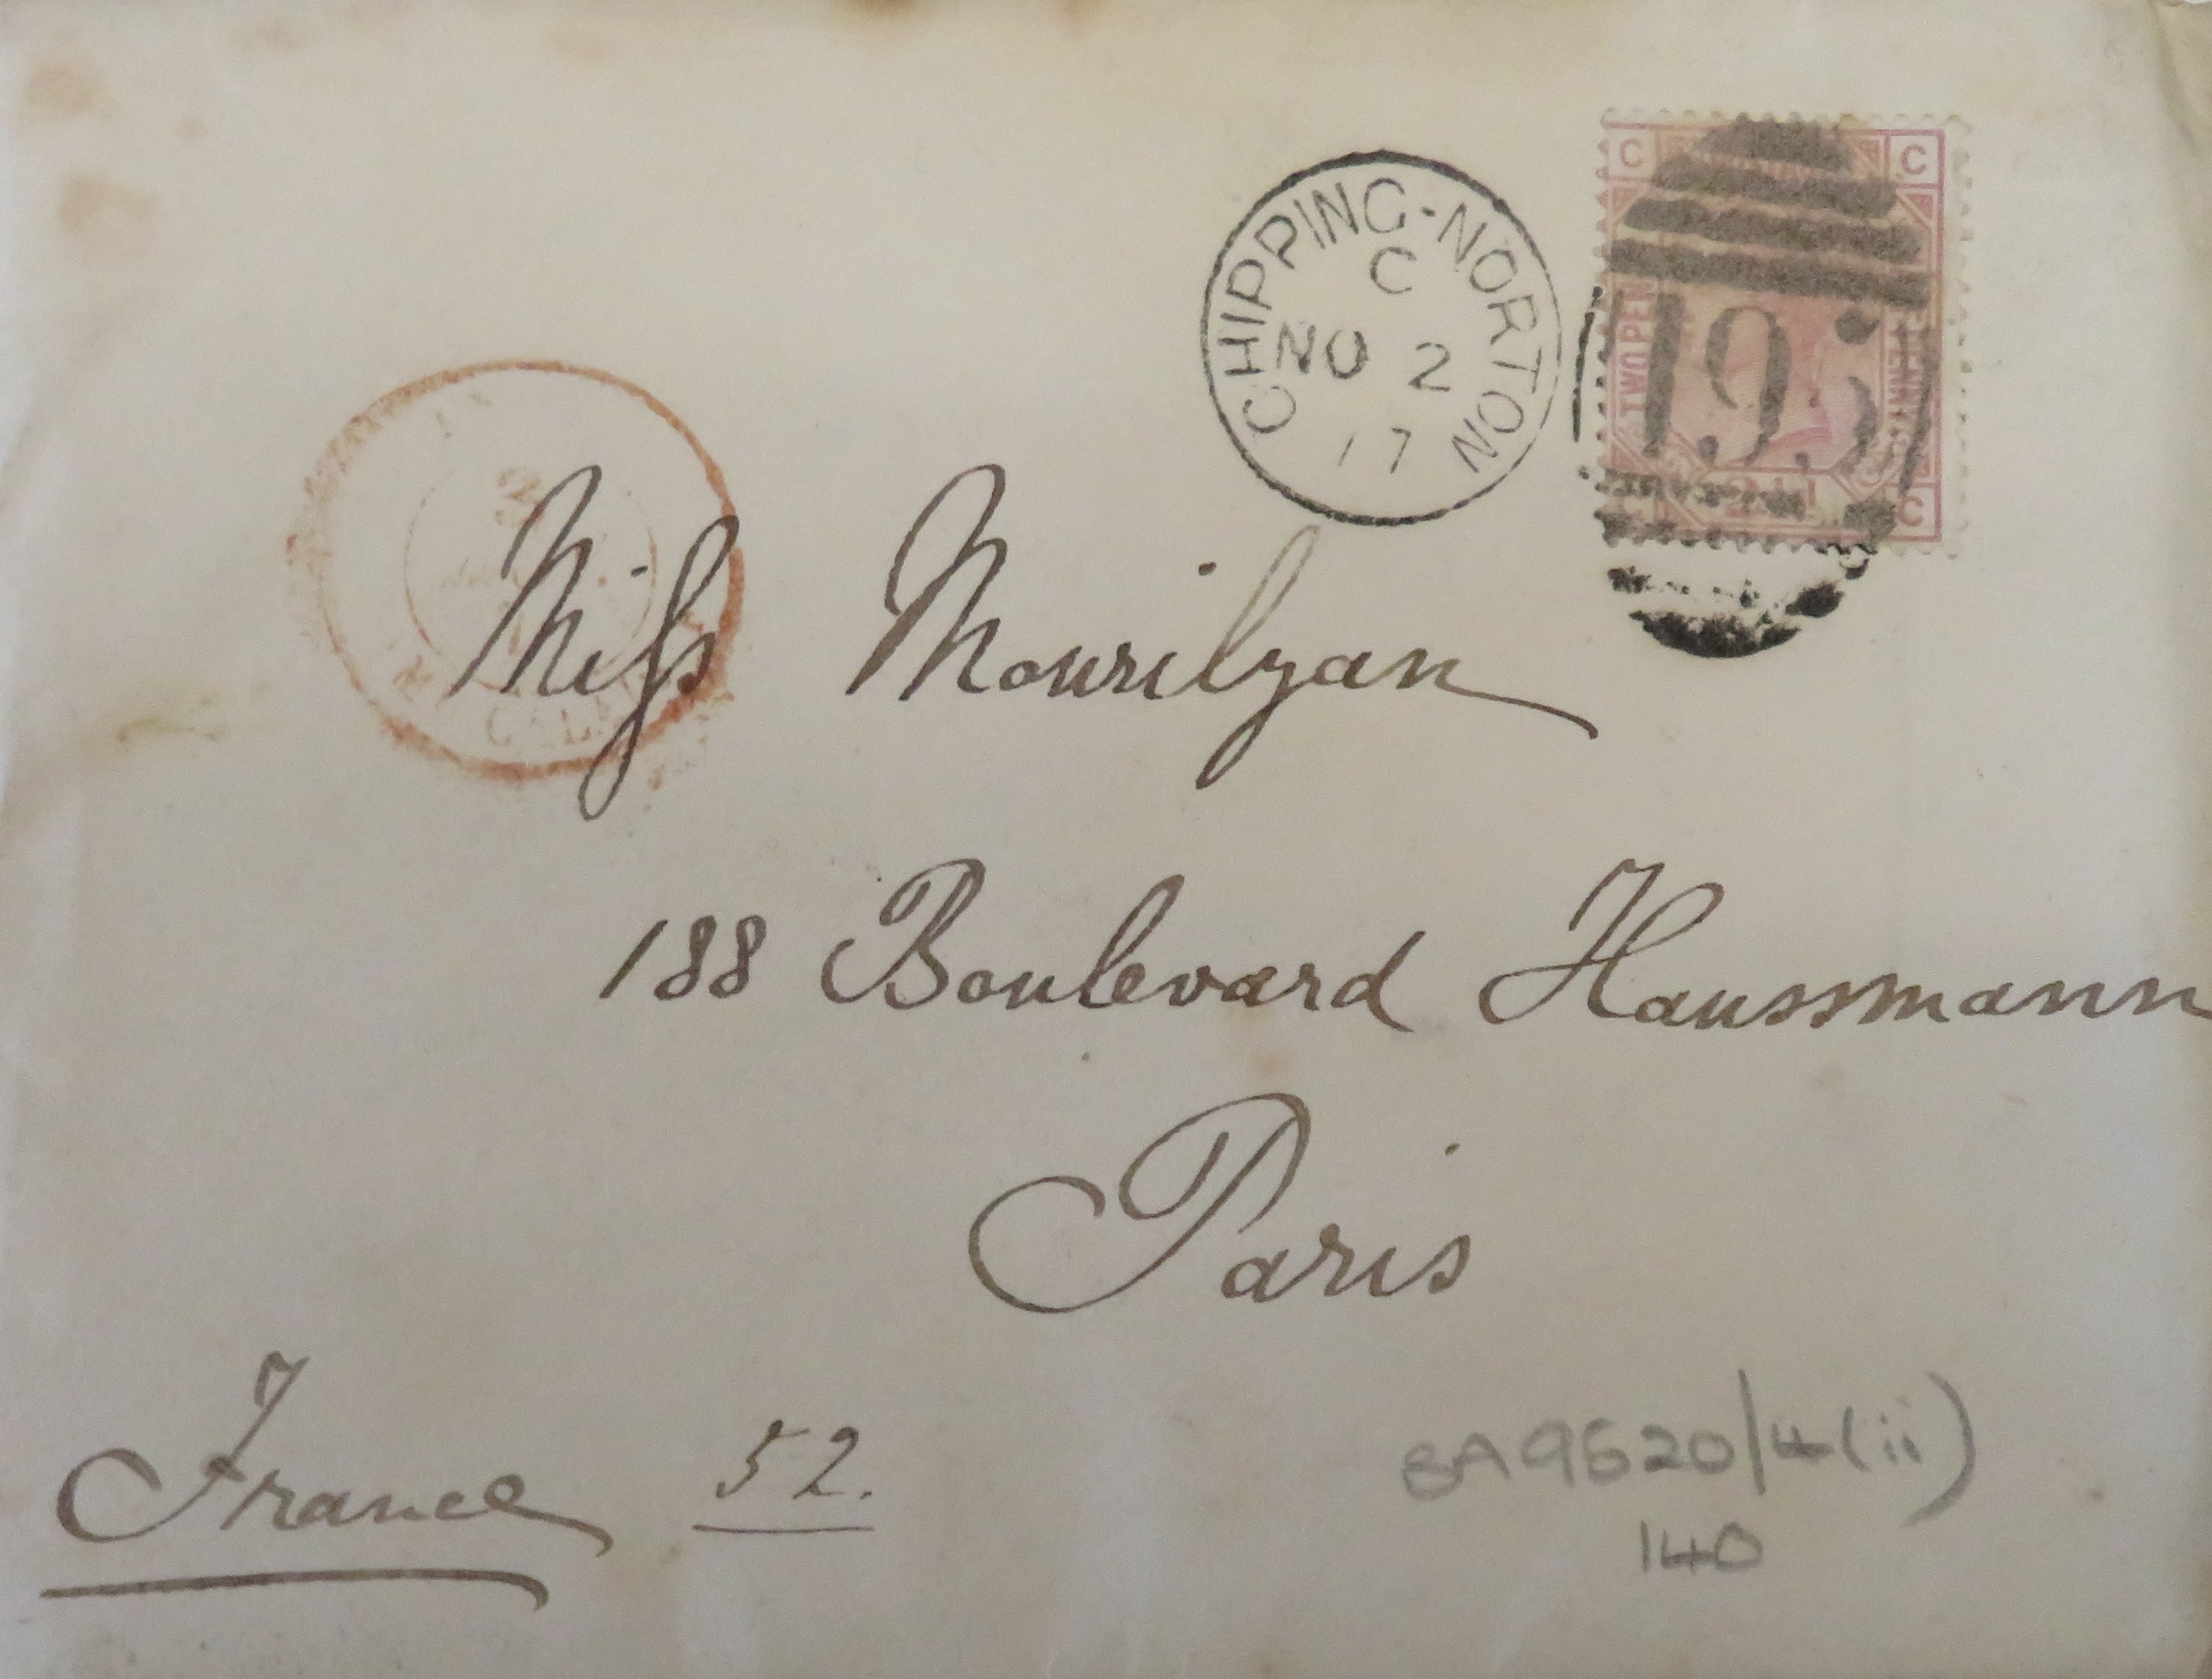 CHIPPING-NORTON
C
NO 2
17
C C
TWO PE
195
C
CALA
Miss Mourilyan
188 Boulevard Haussmann
Paris
France 52.
BA9520/4(ii)
140